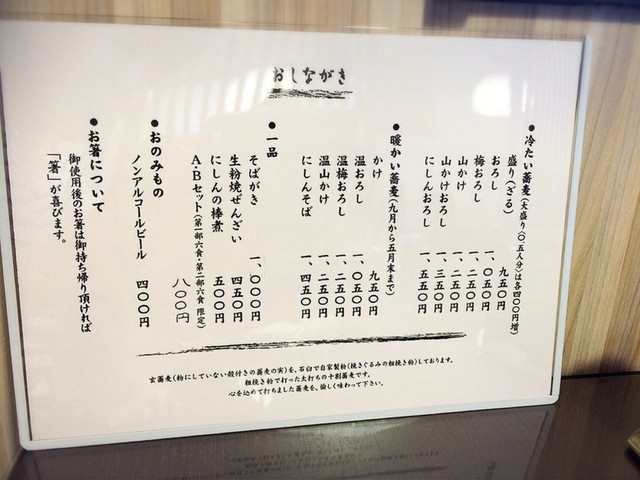 おしながき
●冷たい蕎麦(大盛り(〇.五人分)は各四〇〇円増)
盛り(ざる) 九五〇円
おろし 一、〇五〇円
梅おろし 一、二五〇円
山かけ 一、二五〇円
山かけおろし 一、三五〇円
にしんおろし 一、五五〇円
●暖かい蕎麦(九月から五月末まで)
かけ 九五〇円
温おろし 一、〇五〇円
温梅おろし 一、二五〇円
温山かけ 一、二五〇円
にしんそば 一、四五〇円
●一品
そばがき 一、〇〇〇円
生粉焼ぜんざい 四五〇円
にしんの棒煮 五〇〇円
A・Bセット(第一部六食・第二部六食 限定)
八〇〇円
●おのみもの
ノンアルコールビール 四〇〇円
●お箸について
御使用後のお箸は御持ち帰り頂ければ
「箸」が喜びます。
玄蕎麦(粉にしていない殻付きの蕎麦の実)を、石臼で自家製粉(挽きぐるみの粗挽き粉)しております。
粗挽き粉で打った太打ちの十割蕎麦です。
心を込めて打ちました蕎麦を、愉しく味わって下さい。